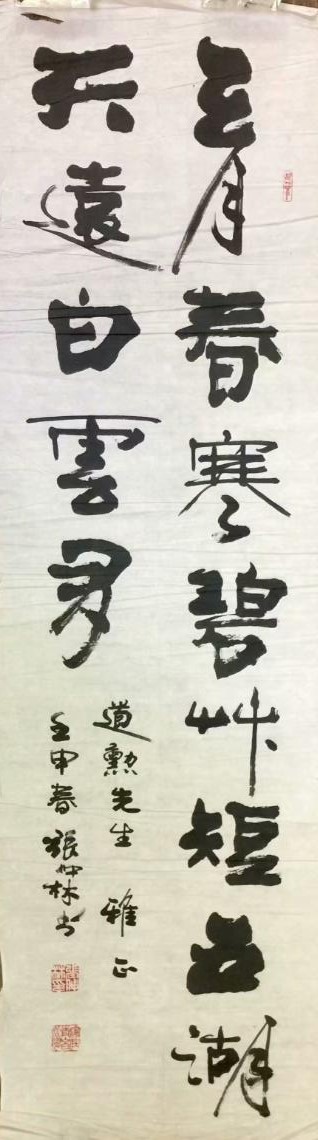 三月春寒碧艸短五湖
天遠白雲多
道勳先生 雅正
壬申春 張仲林书